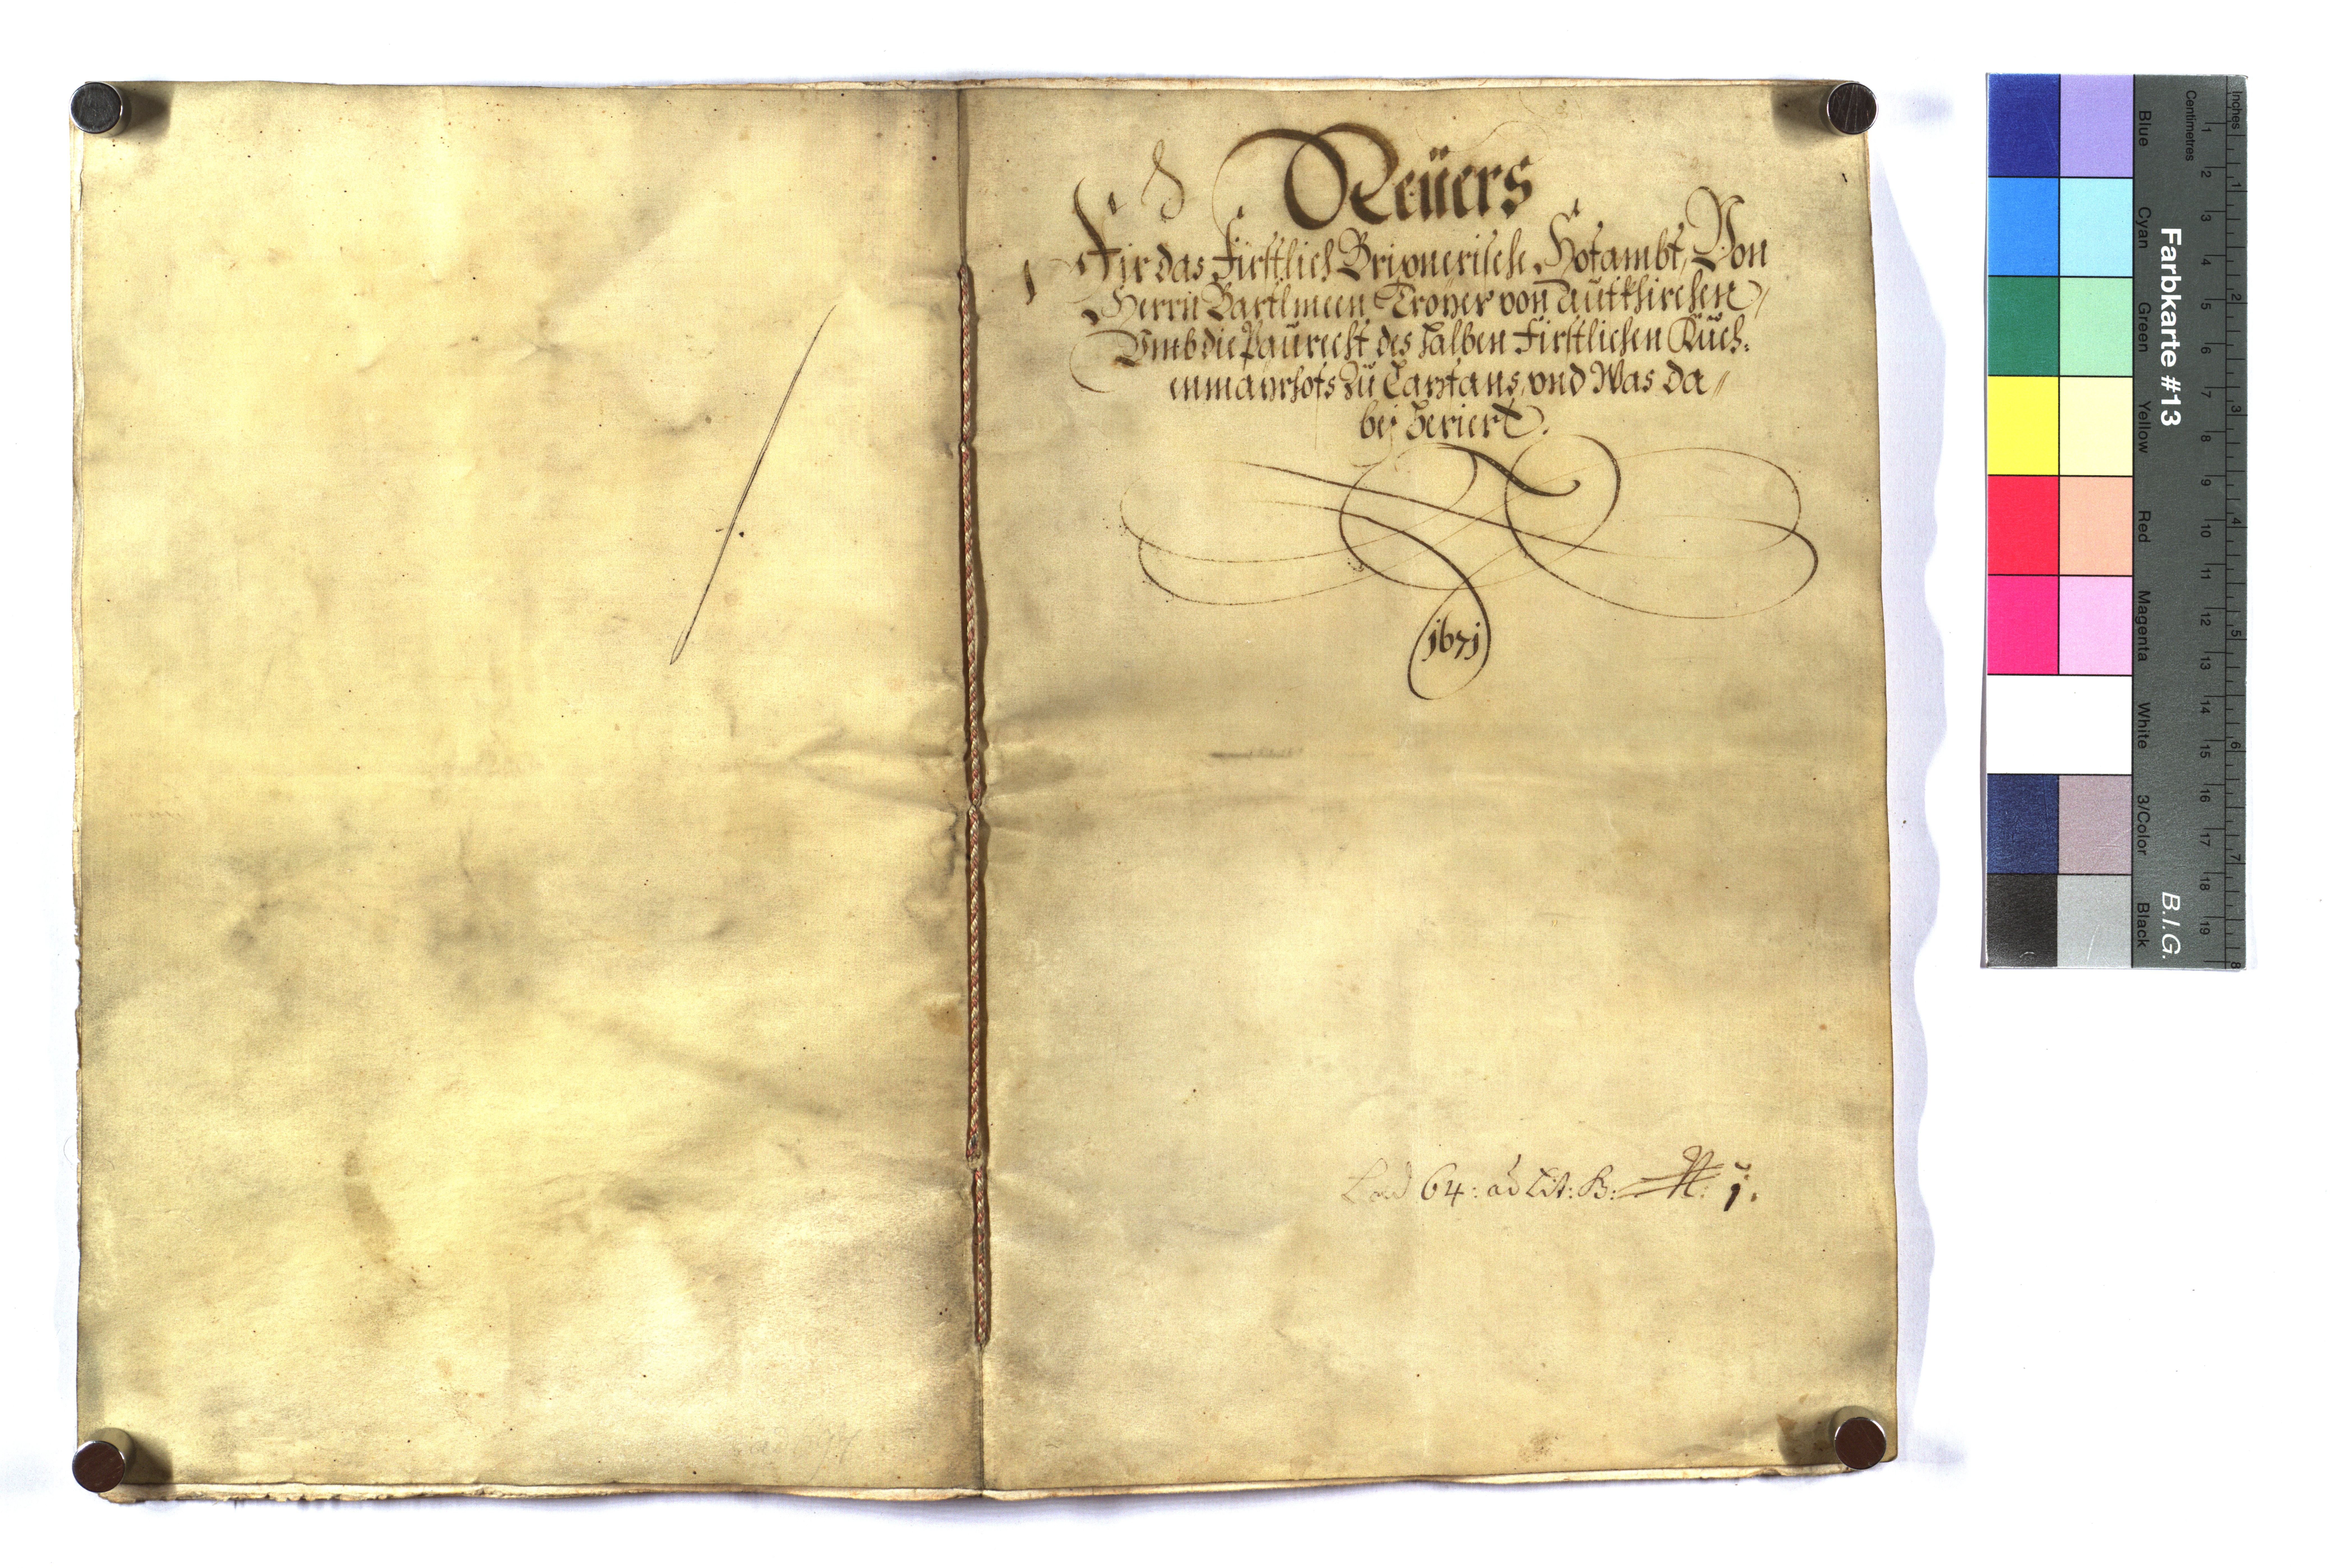 Reüers
Fir das Firstlich Brixnerische Hofambt, Von
Herrn Bartlmeen Troyer von Aufkhirchen
Vmb die Paurecht des halben Firstlichen Kuch:
enmayrhofs zu Tanfans, vnd Was da
bej heriert.
1671
Lad 64: ad Lit: B: N: 1.
Farbkarte #13
B.I.G.
Blue
Cyan
Green
Yellow
Red
Magenta
White
3/Color
Black
Centimetres
Inches
1 2 3 4 5 6 7 8 9 10 11 12 13 14 15 16 17 18 19
1 2 3 4 5 6 7 8